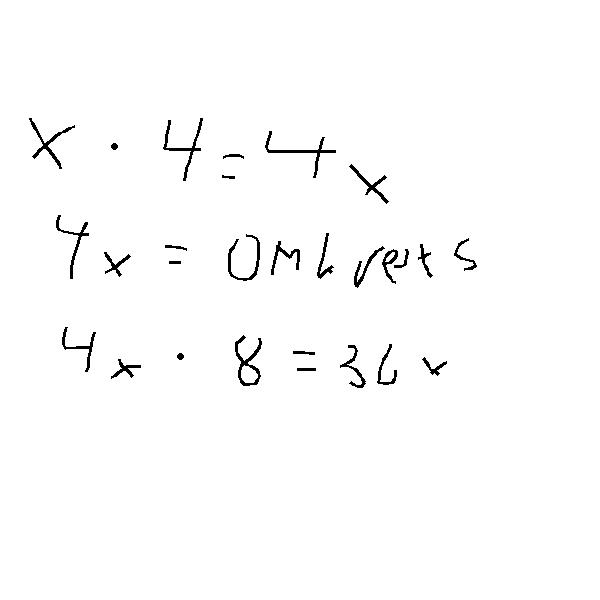 x · 4 = 4x
4x = Omkrets
4x · 8 = 36x